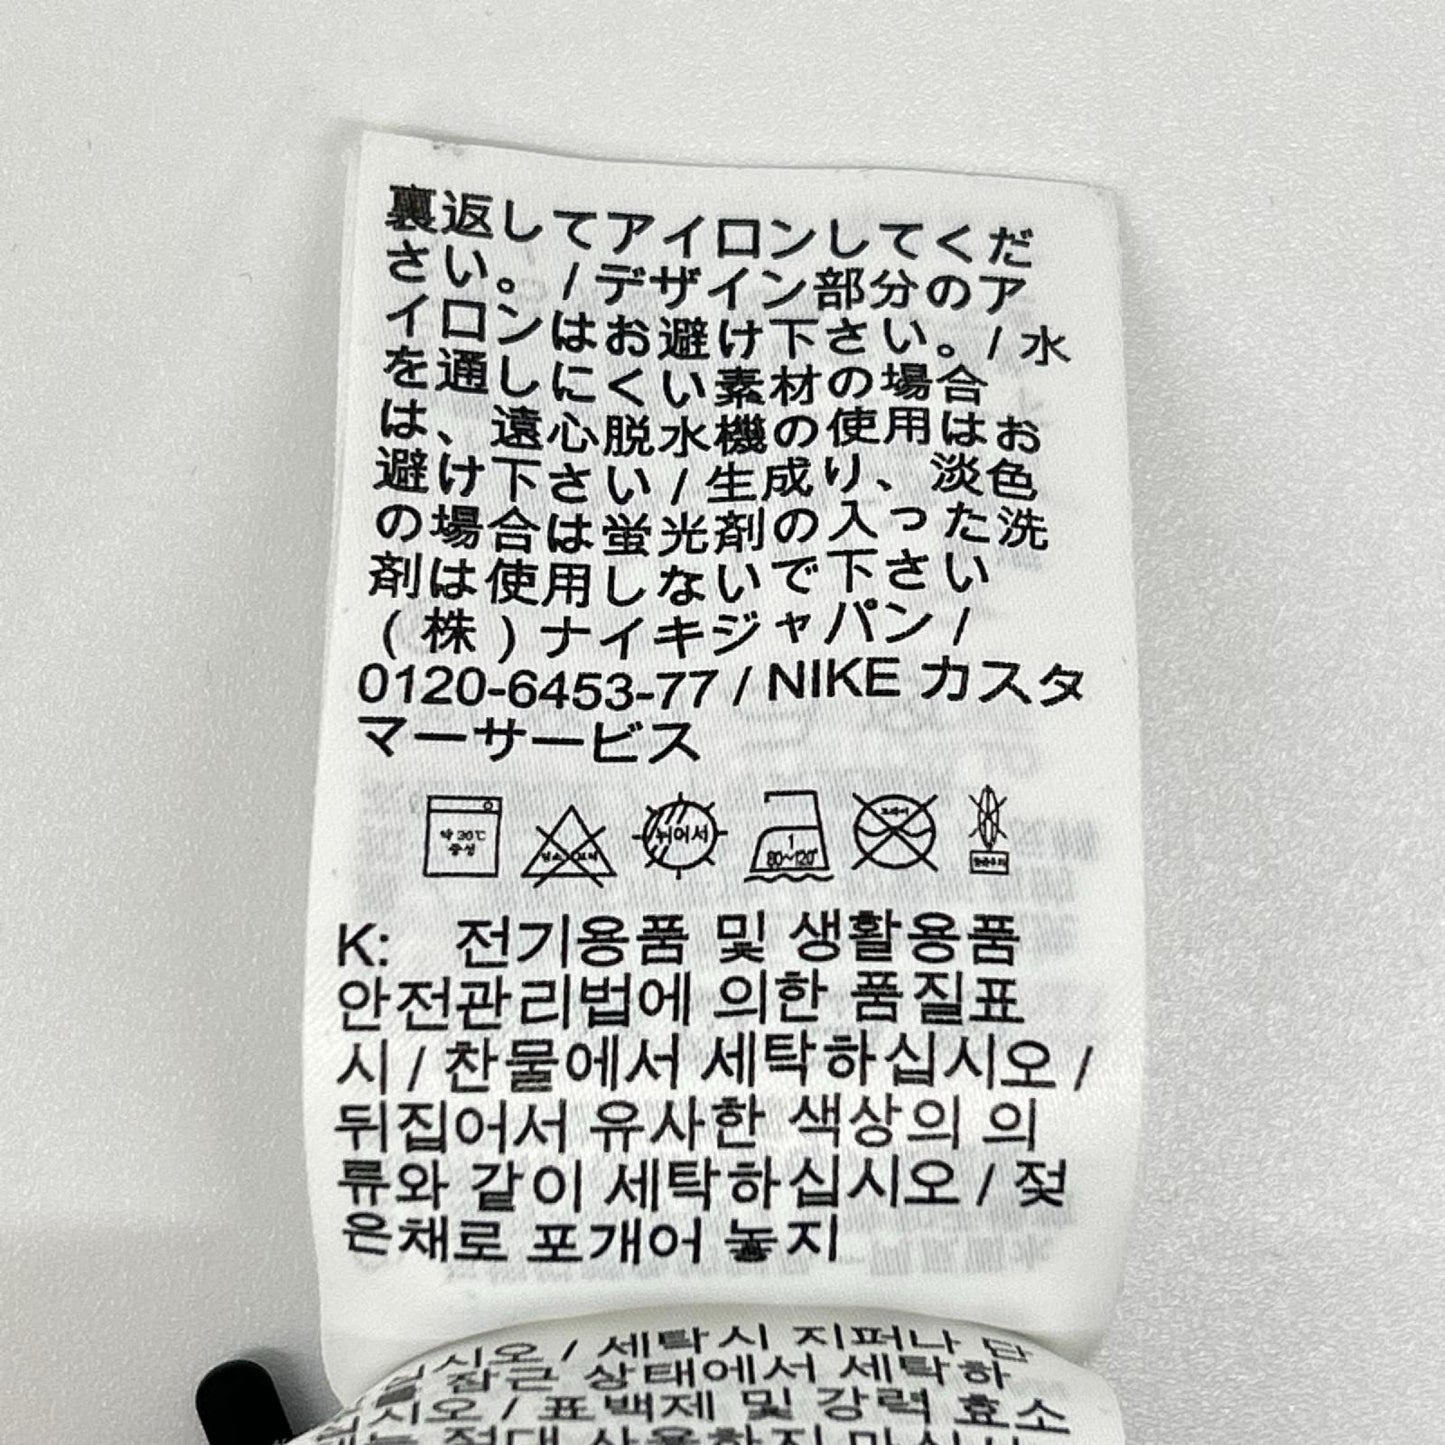 裏返してアイロンしてくだ
さい。 / デザイン部分のア
イロンはお避け下さい。 / 水
を通しにくい素材の場合
は、遠心脱水機の使用はお
避け下さい / 生成り、淡色
の場合は蛍光剤の入った洗
剤は使用しないで下さい
(株)ナイキジャパン /
0120-6453-77 / NIKE カスタ
マーサービス
약 30℃
중성
뉘어서
1
80~120°
드라이
K: 전기용품 및 생활용품
안전관리법에 의한 품질표
시 / 찬물에서 세탁하십시오 /
뒤집어서 유사한 색상의 의
류와 같이 세탁하십시오 / 젖
은채로 포개어 놓지
십시오 / 세탁시 지퍼나 단
잠근 상태에서 세탁하
십시오 / 표백제 및 강력 효소
절대 사용하지 마십시